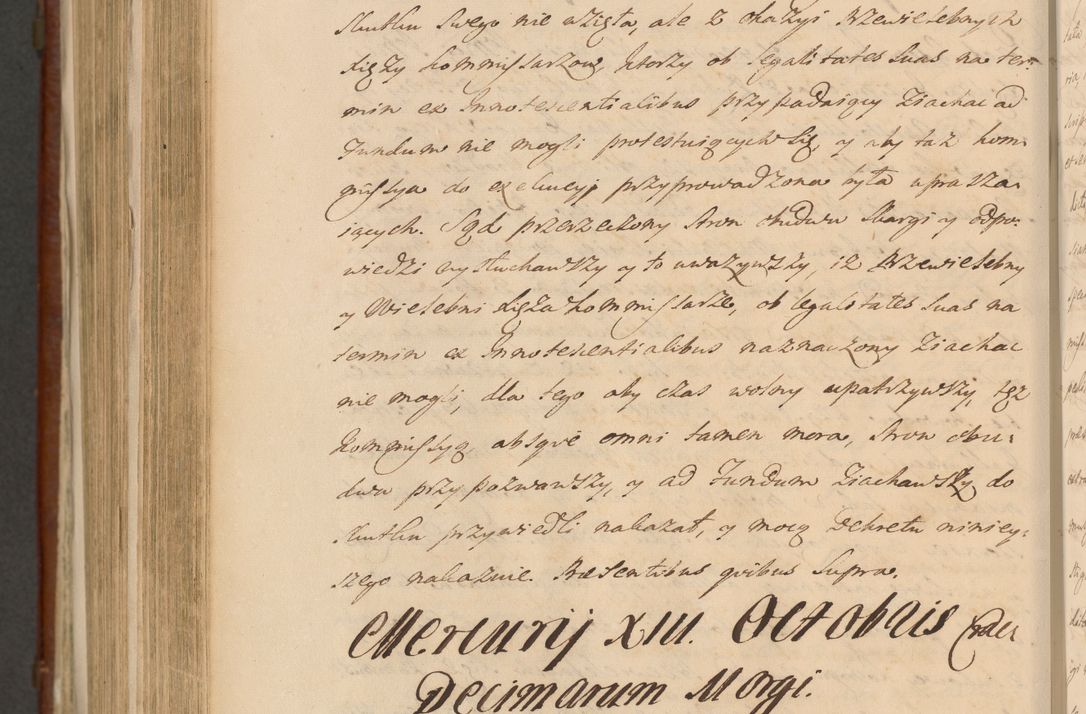 Skutku Swego nie wzięła, ale z okazyi Przewielebnych
Xięży Kommissarzow, ktorzy ob legalitates Suas na ter¬
min ex Innotescentialibus przypadaiący Ziachac ad
Fundum nie mogli protestuiących Się, y aby taż kom¬
missya do exekucyi przyprowadzona była uprasza¬
iących. Sąd przerzeczony Stron obudwu Skargi y odpo¬
wiedzi wysłuchawszy y to uwazywszy, iz Przewielebny
y Wielebni Xięża Kommissarze, ob legalitates Suas na
termin ex Innotescentialibus naznaczony Ziachac
nie mogli, dla tego aby czas wolny upatrzywszy, tęż
Kommissyą absqve omni tamen mora, Stron obu¬
dwu przypozwawszy, y ad Fundum Ziachawszy do
Skutku przywiedli nakazał, y mocą Dekretu niniey¬
szego nakazuie. Præsentibus qvibus Supra.
Mercurij XIII. Octobris
Decimarum Morgi.